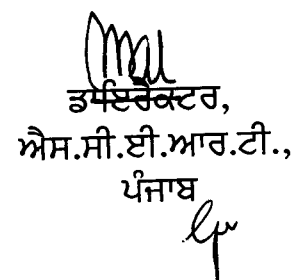 ਡਾਇਰੈਕਟਰ,
ਐਸ.ਸੀ.ਈ.ਆਰ.ਟੀ.,
ਪੰਜਾਬ